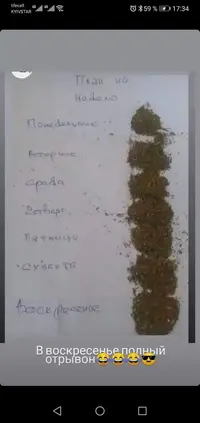 lifecell
KYIVSTAR
59 %
17:34
План на
Неделю
Понедельник
Вторник
Среда
Четверг
Пятница
Суббота
Воскресение
В воскресенье полный
отрывон😂😂😂😎